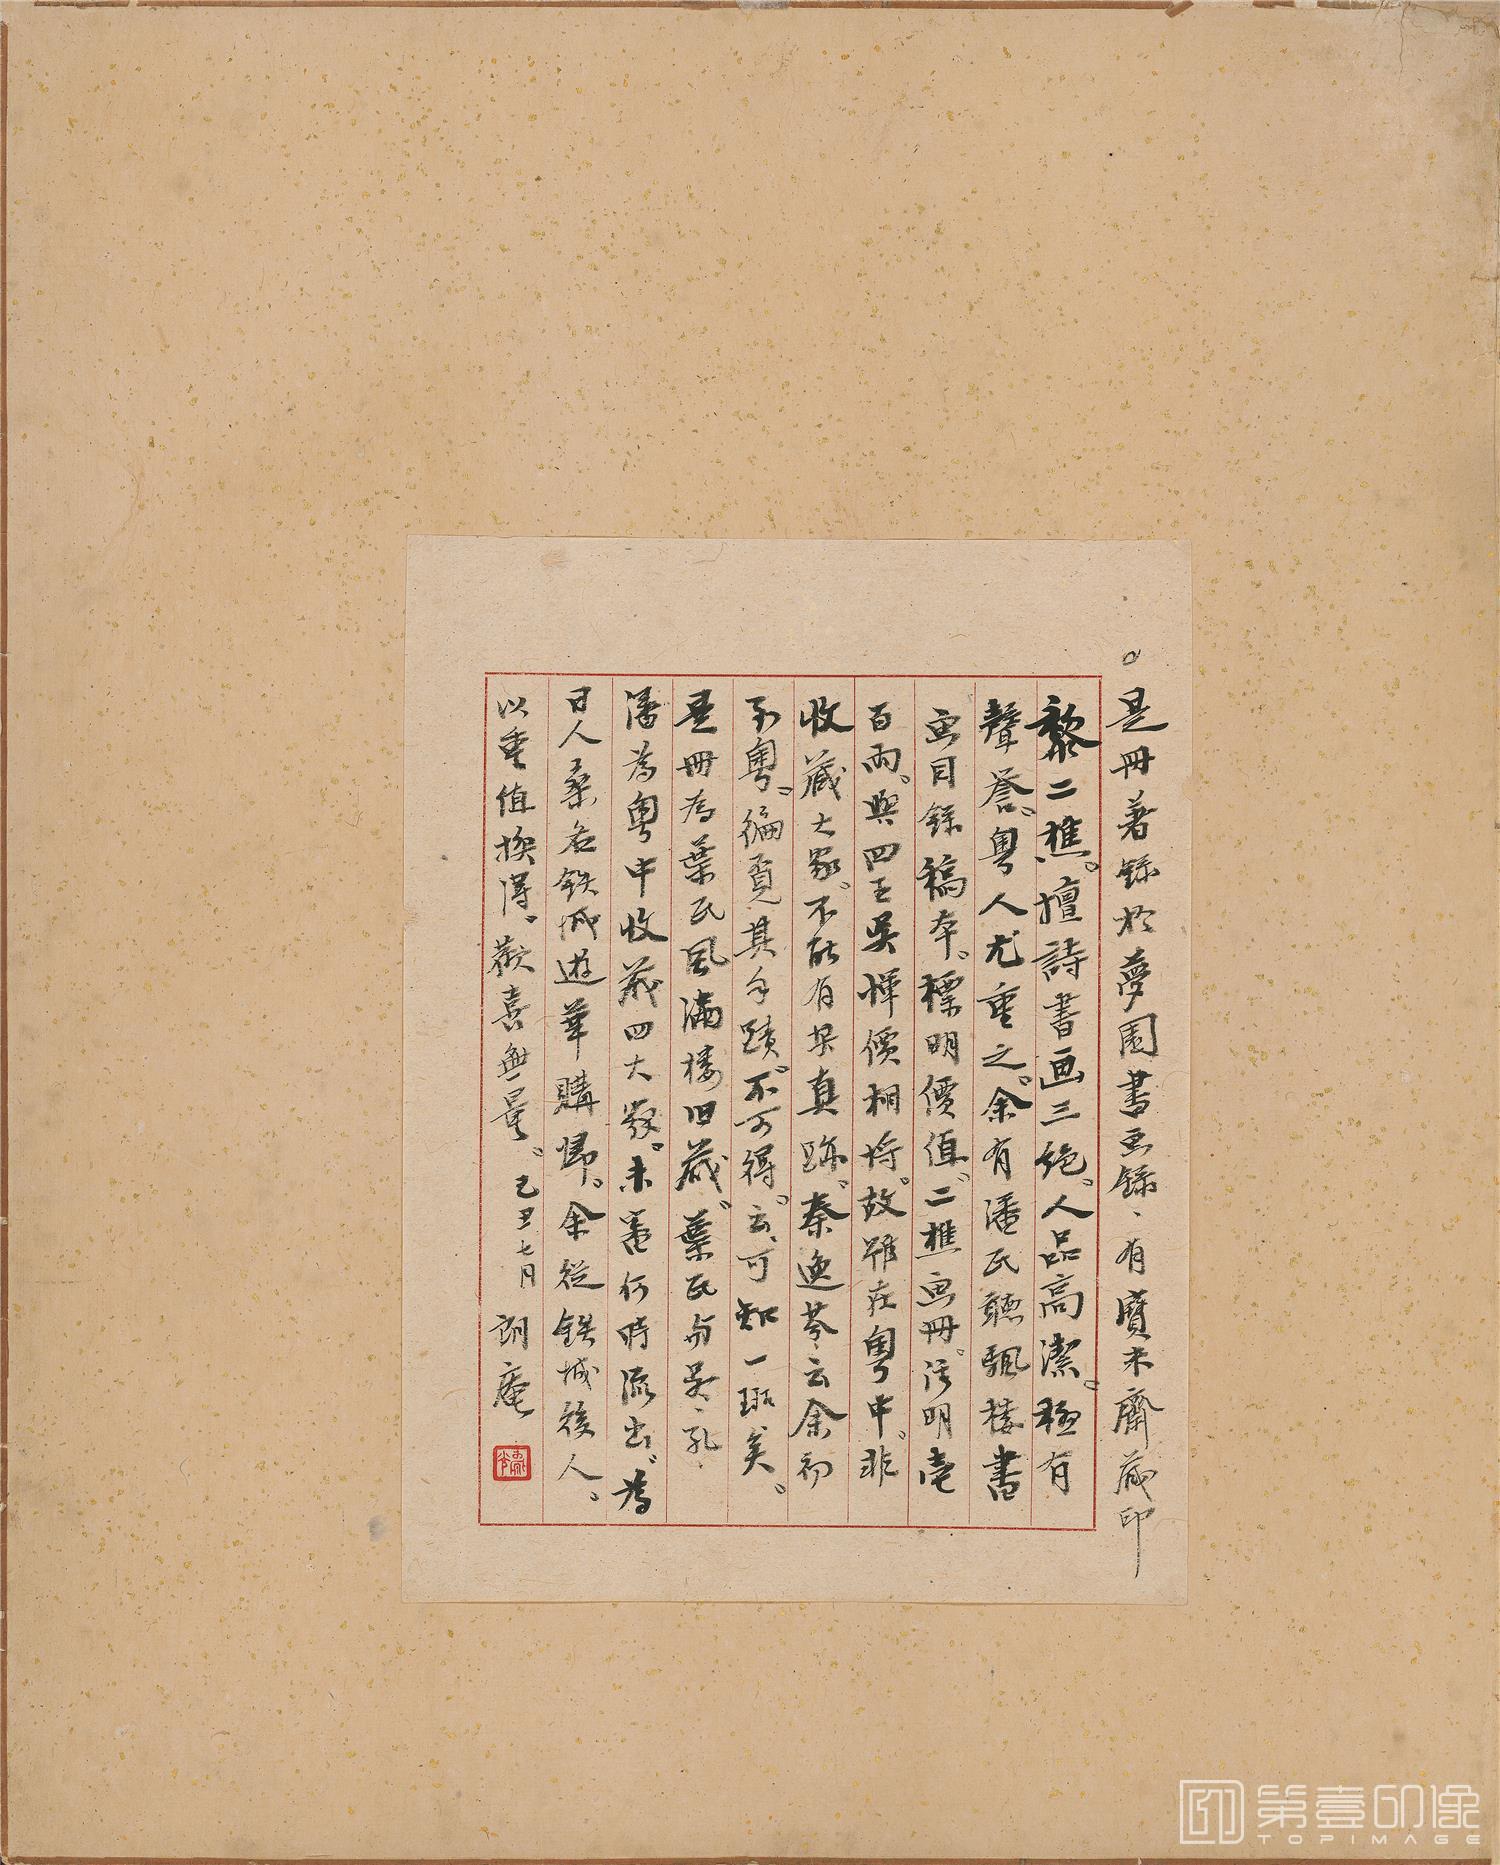 是冊著錄於夢園書画錄、有寶米齋藏印
黎二樵。擅詩書画三絶、人品高潔。極有
聲譽。粵人尤重之。余有潘氏聽颿樓書
画目錄稿本。標明價值。二樵画冊。注明壱
百兩。與四王吳惲價相将。故雖在粵中。非
收藏大家。不能有其真跡。秦逸芬云余初
至粵。徧覓其手蹟。不可得。云、可知一斑矣。
是冊為葉氏風滿樓旧藏。葉氏与吳、孔、
潘為粵中收藏四大家。未審何時流出。為
日人桑名鉄城遊華購歸。余從鉄城後人。
以重值換得。歡喜無量。己丑七月 朗庵
第壹印像
TOPIMAGE